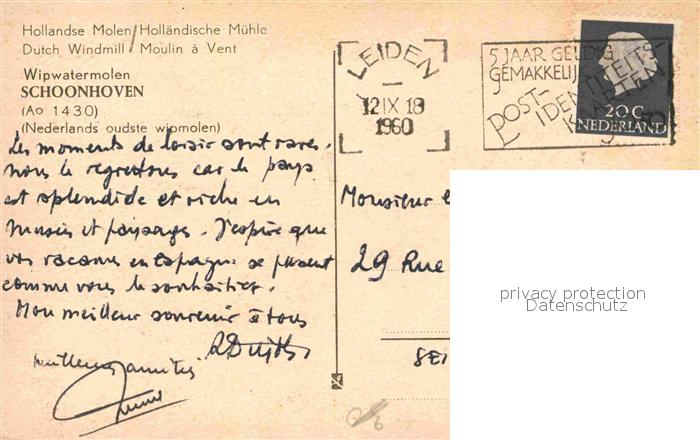 Hollandse Molen/Holländische Mühle
Dutch Windmill/Moulin à Vent
Wipwatermolen
SCHOONHOVEN
(Ao 1430)
(Nederlands oudste wipmolen)
Les moments de loisir sont rares.
nous le regrettons car le pays
est splendide et riche en
musées et paysages. J'espère que
vos vacances en Espagne se passent
comme vous le souhaitiez.
Mon meilleur souvenir à tous
amitiés
LEIDEN
12 IX 18
1960
5 JAAR GELDIG
GEMAKKELIJK
POST-
IDENTITEITS-
KAARTEN
20 C
NEDERLAND
Monsieur
29 Rue
privacy protection
Datenschutz